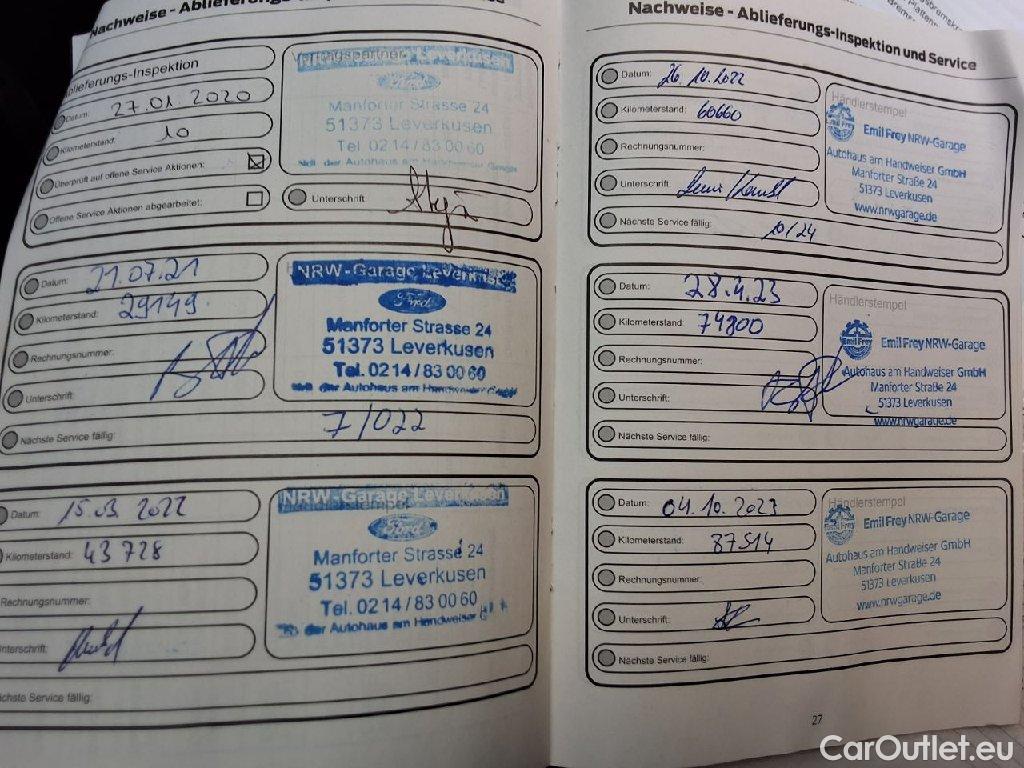 Nachweise - Ablieferungs-
Ablieferungs-Inspektion
Datum: 27.01.2020
Kilometerstand: 10
Überprüft auf offene Service Aktionen:
Offene Service Aktionen abgearbeitet:
Manforter Strasse 24
51373 Leverkusen
Tel. 02 14 / 83 00 60
der Autohaus am Handweiser GmbH
Unterschrift
Datum: 21.07.21
Kilometerstand: 29149
Rechnungsnummer:
Unterschrift:
Nächste Service fällig: 7/022
NRW-Garage Leverkusen
Ford
Manforter Strasse 24
51373 Leverkusen
Tel. 02 14 / 83 00 60
der Autohaus am Handweiser GmbH
Datum: 15.03.2022
Kilometerstand: 43 728
Rechnungsnummer:
Unterschrift:
Nächste Service fällig:
NRW-Garage Leverkusen
Ford
Manforter Strasse 24
51373 Leverkusen
Tel. 02 14 / 83 00 60
der Autohaus am Handweiser
Nachweise - Ablieferungs-Inspektion und Service
Datum: 26.10.2022
Kilometerstand: 60660
Rechnungsnummer:
Unterschrift
Nächste Service fällig: 10/24
Händlerstempel
Emil Frey NRW-Garage
Autohaus am Handweiser GmbH
Manforter Straße 24
51373 Leverkusen
www.nrwgarage.de
Datum: 28.4.23
Kilometerstand: 74800
Rechnungsnummer:
Unterschrift:
Nächste Service fällig:
Händlerstempel
Emil Frey NRW-Garage
Autohaus am Handweiser GmbH
Manforter Straße 24
51373 Leverkusen
www.nrwgarage.de
Datum: 04.10.2023
Kilometerstand: 87514
Rechnungsnummer:
Unterschrift:
Nächste Service fällig:
Händlerstempel
Emil Frey NRW-Garage
Autohaus am Handweiser GmbH
Manforter Straße 24
51373 Leverkusen
www.nrwgarage.de
27
CarOutlet.eu